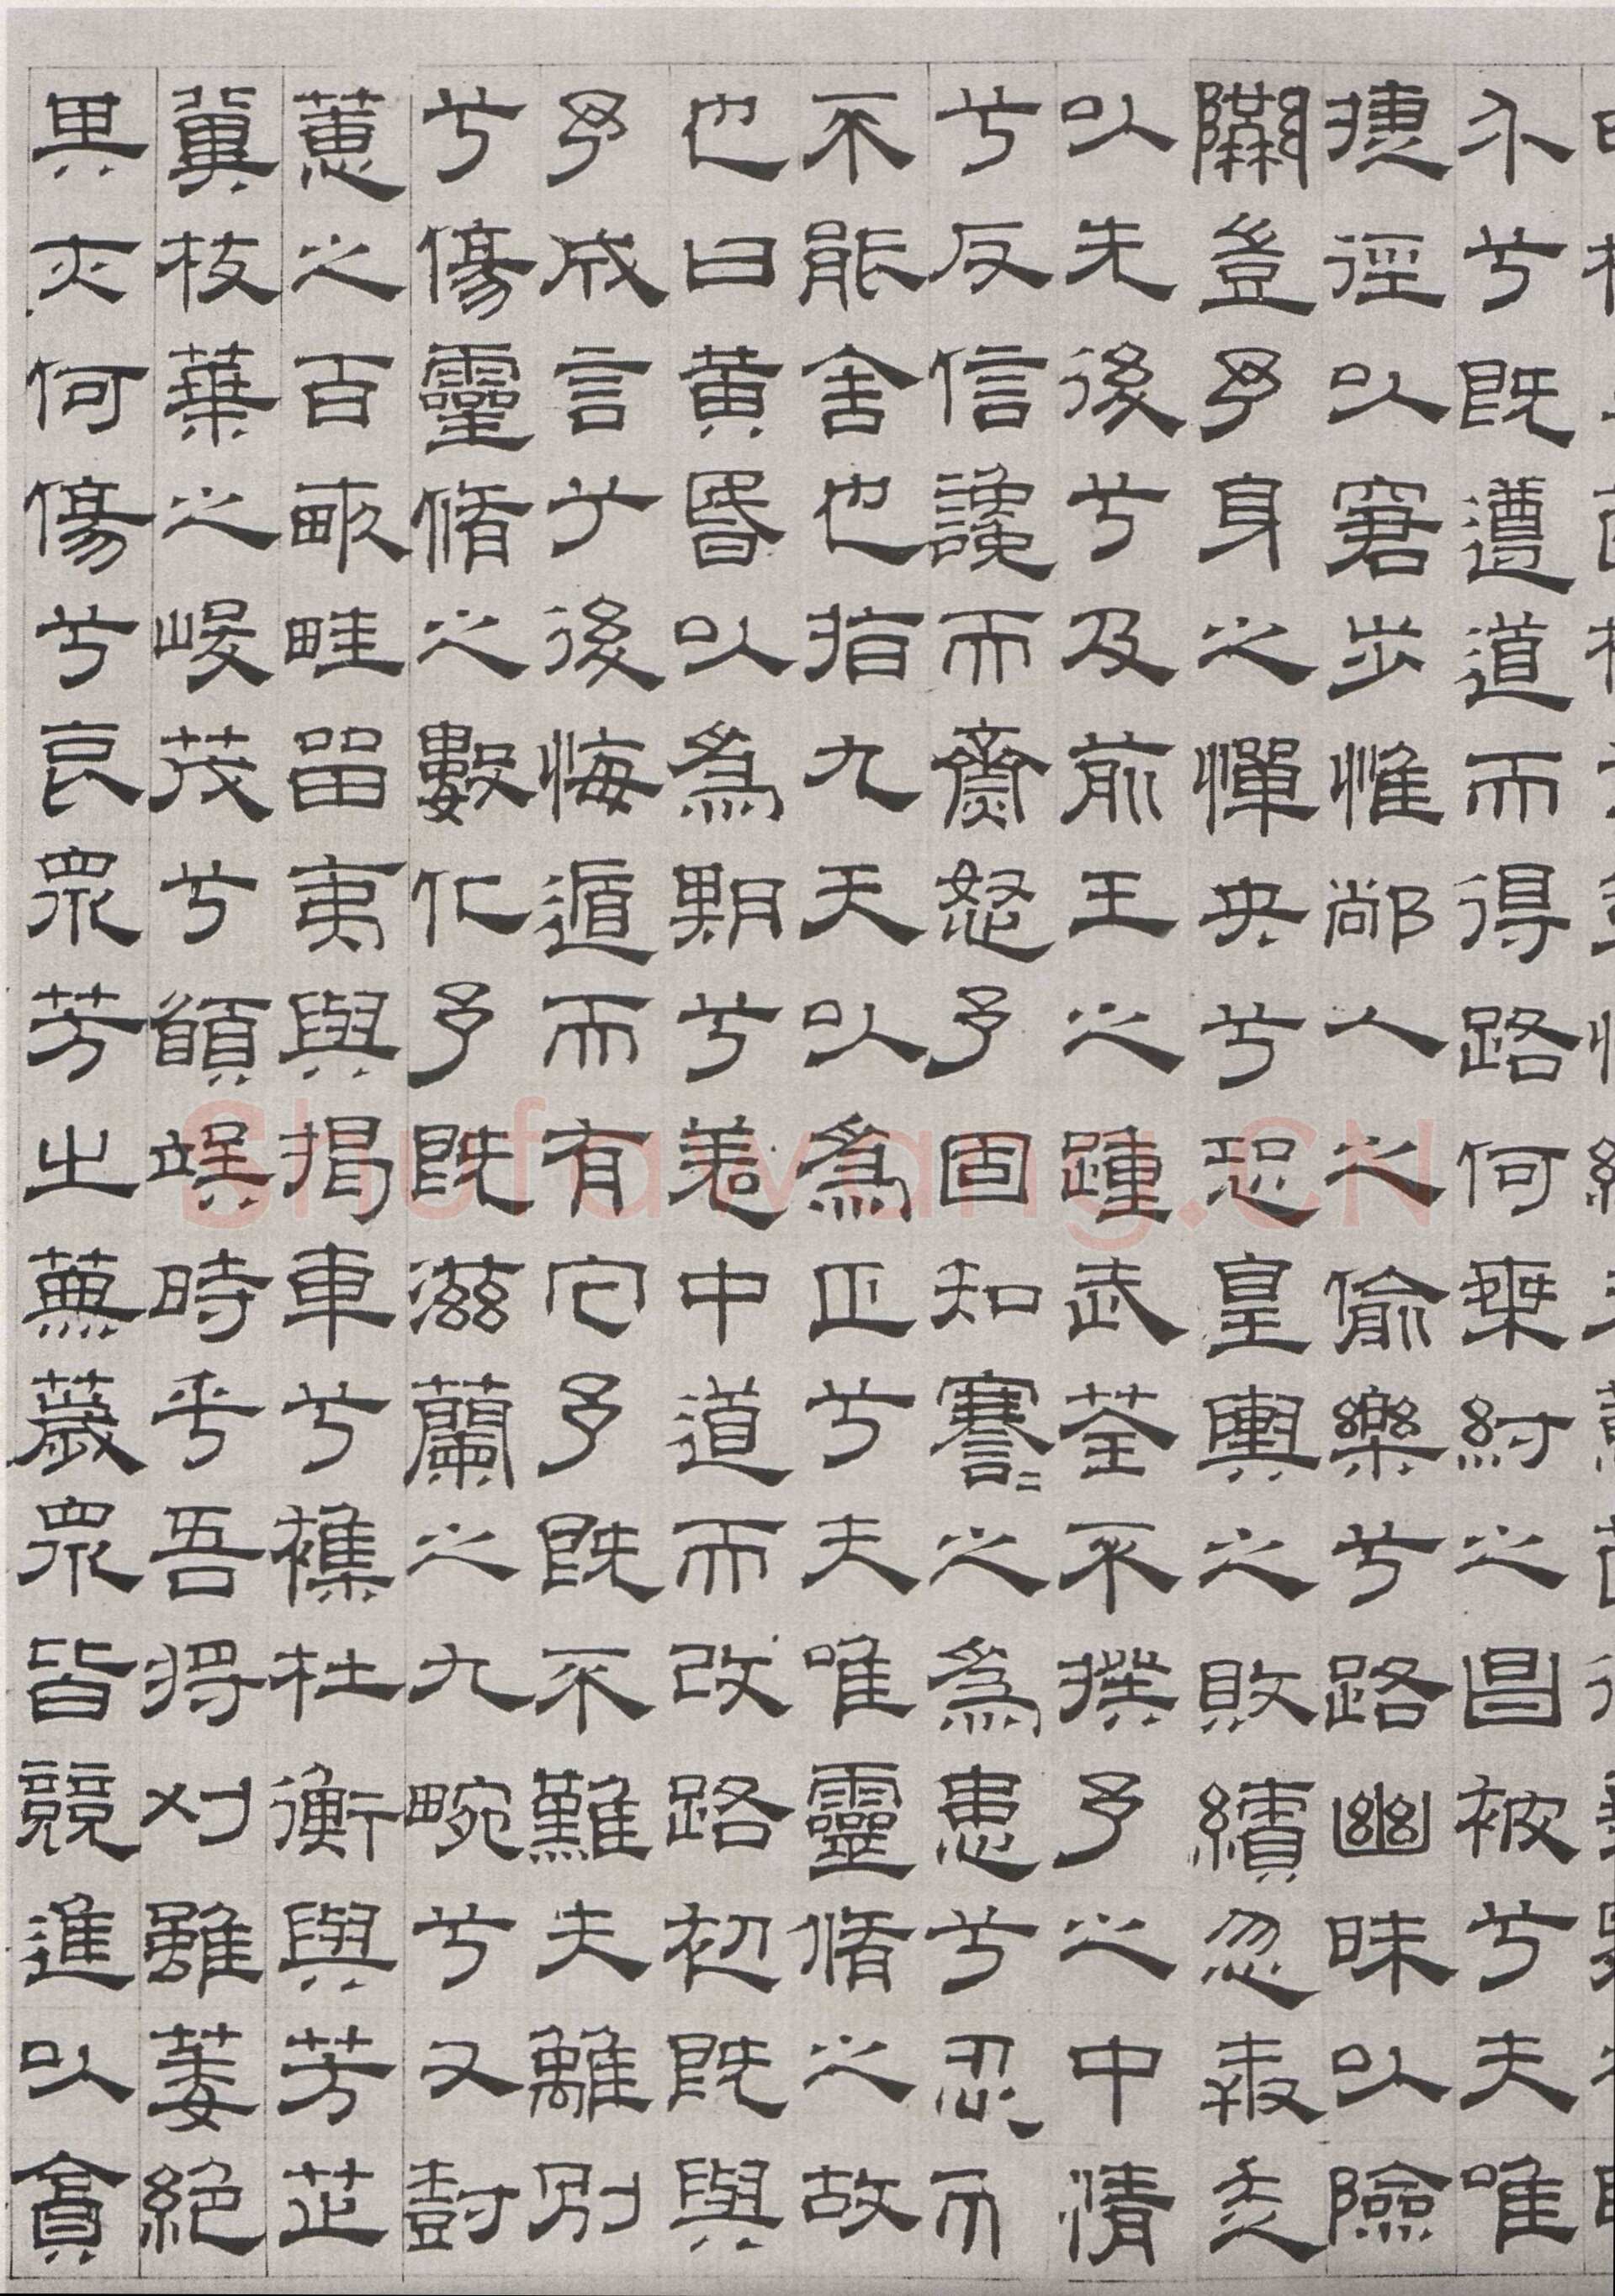 介兮既遵道而得路何桀紂之昌被兮夫唯
捷徑以窘步惟黨人之偷樂兮路幽昧以險
隘豈予身之憚央兮恐皇輿之敗績忽奔走
以先後兮及前王之踵武荃不揆予之中情
兮反信讒而齌怒予固知謇〻之為患兮忍而
不能舍也指九天以為正兮夫唯靈脩之故
也曰黃昏以為期兮羌中道而改路初既與
予成言兮後悔遁而有它予既不難夫離別
兮傷靈脩之數化予既滋蘭之九畹兮又樹
蕙之百畝畦留夷與揭車兮雜杜衡與芳芷
冀枝葉之峻茂兮願竢時乎吾將刈雖萎絕
其亦何傷兮哀眾芳之蕪薉眾皆競進以貪
Shufawang.CN